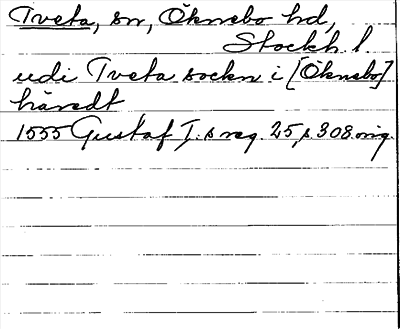 Tveta, sn, Öknebo hd,
Stockh. l.
udi Tveta sockn i [Öknebo]
häredt
1555 Gustaf I.s reg. 25, s. 308. orig.